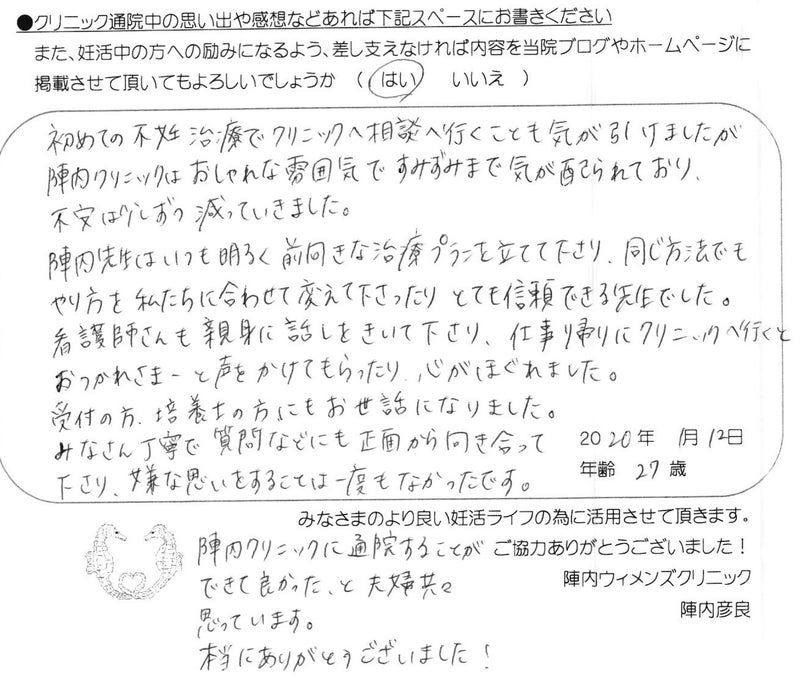 ●クリニック通院中の思い出や感想などあれば下記スペースにお書きください
また、妊活中の方への励みになるよう、差し支えなければ内容を当院ブログやホームページに
掲載させて頂いてもよろしいでしょうか （ はい　いいえ ）
初めての不妊治療でクリニックへ相談へ行くことも気が引けましたが
陣内クリニックはおしゃれな雰囲気ですみずみまで気が配られており、
不安は少しずつ減っていきました。
陣内先生はいつも明るく前向きな治療プランを立てて下さり、同じ方法でも
やり方を私たちに合わせて変えて下さったりとても信頼できる先生でした。
看護師さんも親身に話しをきいて下さり、仕事帰りにクリニックへ行くと
おつかれさまーと声をかけてもらったり、心がほぐれました。
受付の方、培養士の方にもお世話になりました。
みなさん丁寧で質問などにも正面から向き合って
下さり、嫌な思いをすることは一度もなかったです。
2020年 1月12日
年齢 27歳
みなさまのより良い妊活ライフの為に活用させて頂きます。
ご協力ありがとうございました！
陣内ウィメンズクリニック
陣内彦良
陣内クリニックに通院することが
できて良かった、と夫婦共々
思っています。
本当にありがとうございました！